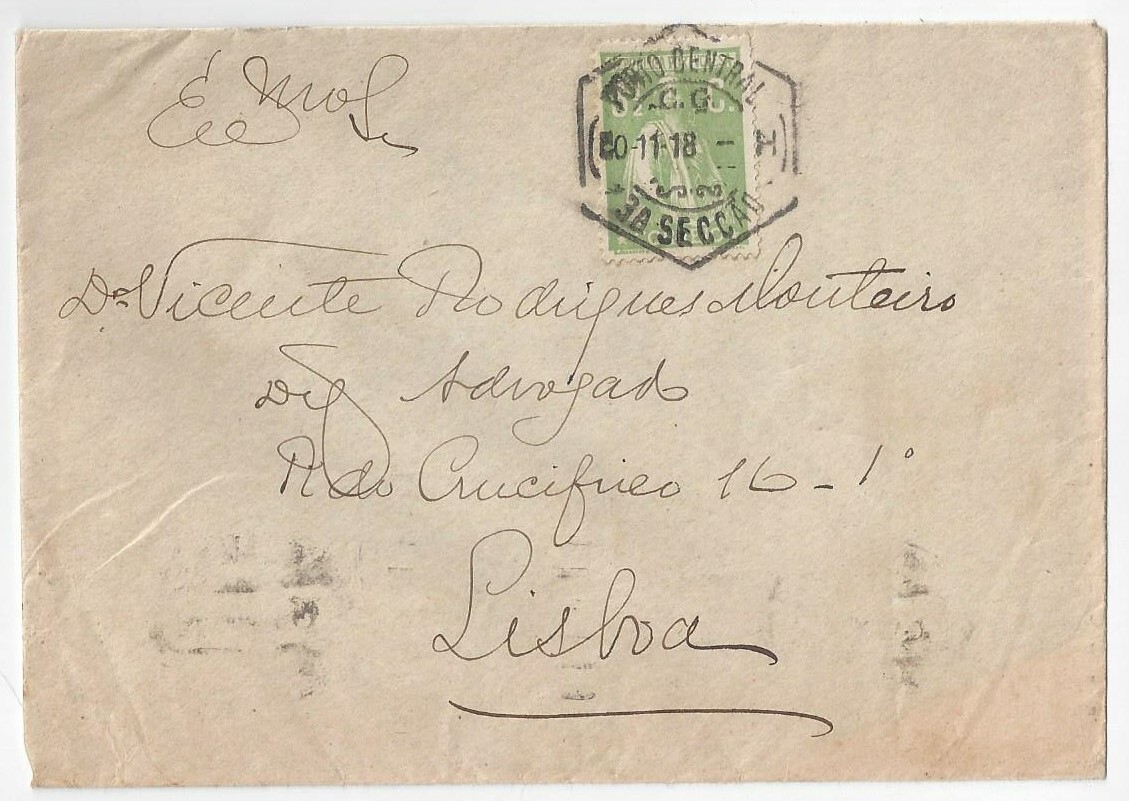 Exmo Sr
PORTO CENTRAL
C. G.
20-11-18
3A SECCÃO
Dr. Vicente Rodrigues Monteiro
Dig Advogado
R. do Crucifixo 16-1º
Lisboa